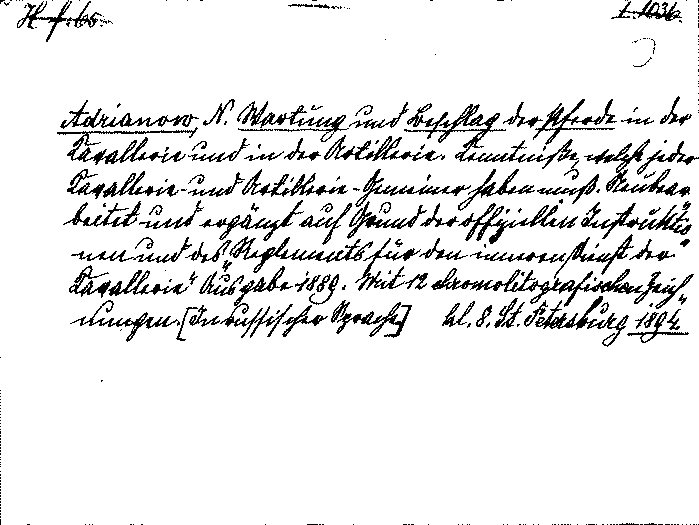 H. f. 65. 1. 1036.
Adrianow, N. Wartung und Beschlag der Pferde in der
Kavallerie und in der Artillerie. Kenntniße, welche jeder
Kavallerie- und Artillerie-Gemeiner haben muß. Neubear-
beitet und ergänzt auf Grund der offiziellen Instruktio-
nen und des "Reglements für den inneren Dienst der
Kavallerie" Ausgabe 1889. Mit 12 chromolitografischen Zeich-
nungen. [In russischer Sprache] kl. 8. St. Petersburg 1894.